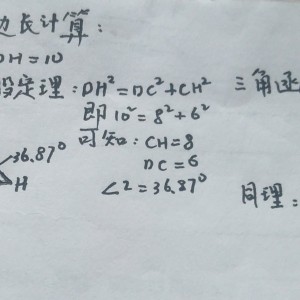 边长计算:
DH=10
股定理:DH²=DC²+CH² 三角函
即10²=8²+6²
可知:CH=8
∠36.87°
DC=6
H
∠2=36.87°
同理: